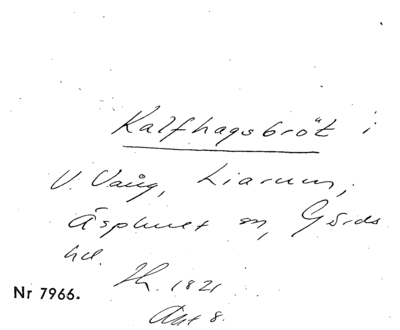 Kalfhagsbröt i
V. Vång, Liarum,
Äsphult sn, Gärds
hd.
Th. 1821
Nr 7966.
Akt 8.